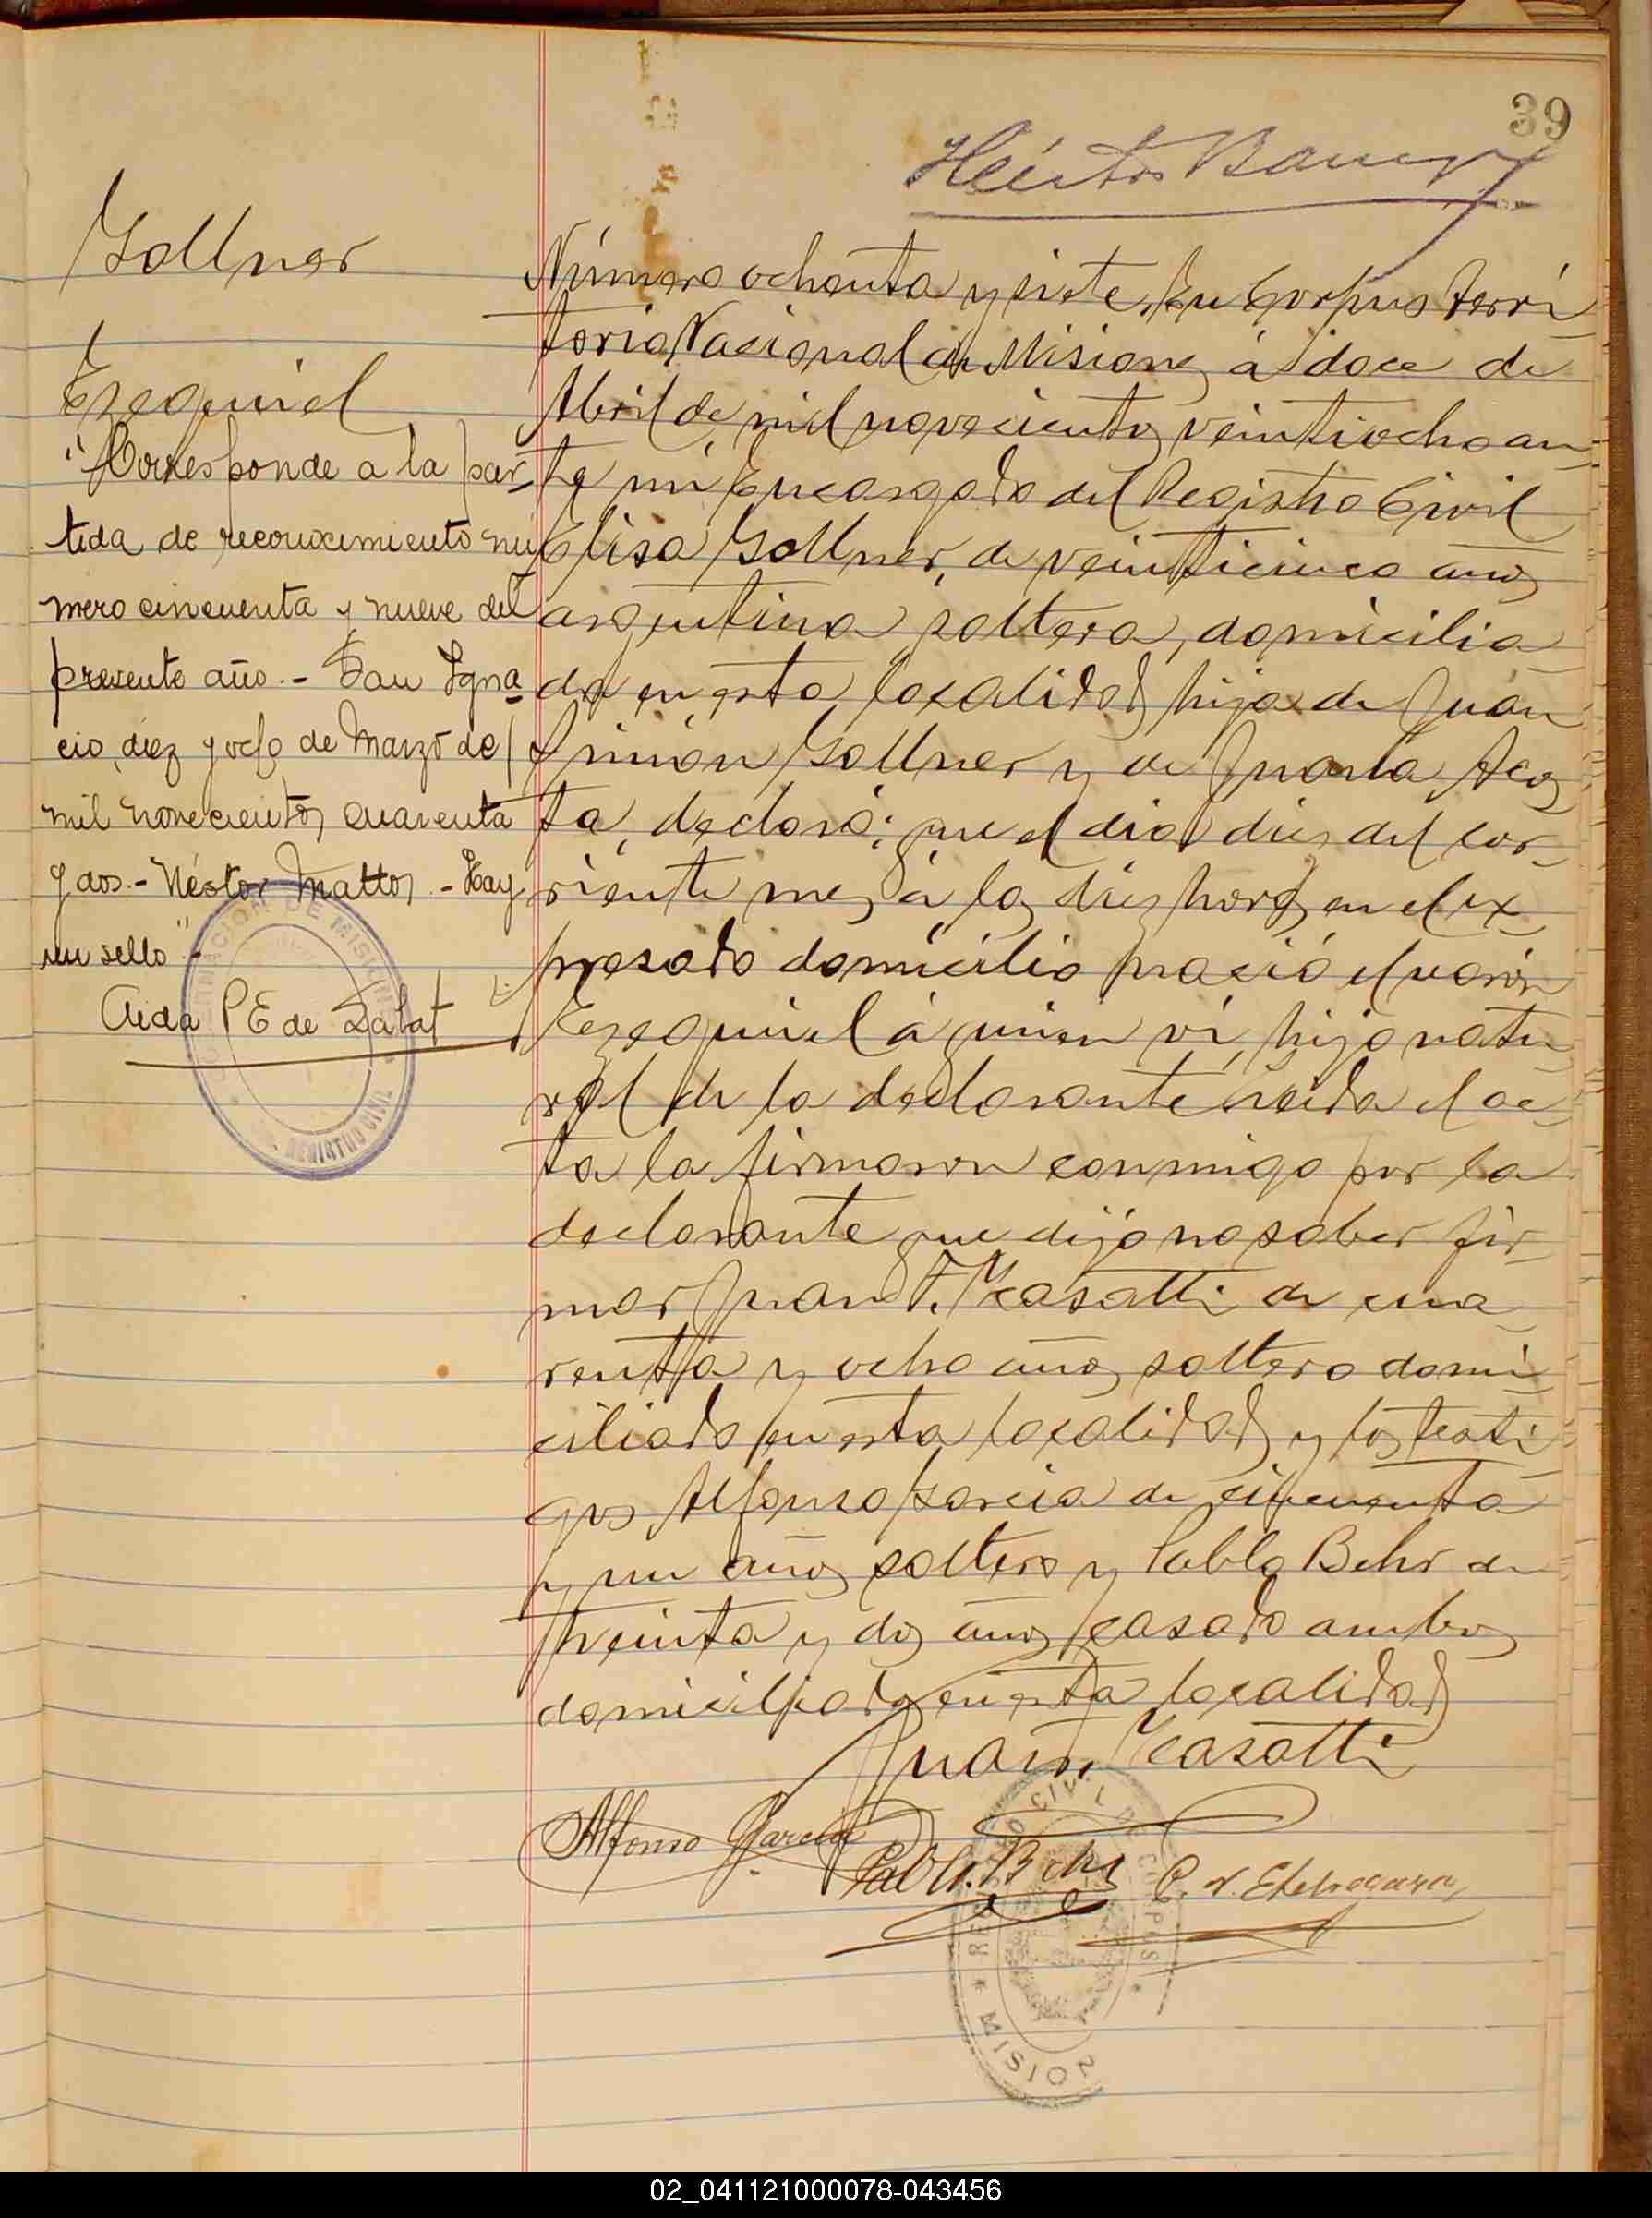 39
Héctor Barrey
Gollner
Ezequiel
"Corresponde a la par-
tida de reconocimiento nú
mero cincuenta y nueve del
presente año.- San Igna-
cio, diez y ocho de Marzo de
mil novecientos cuarenta
y dos.- Néstor Mattos.- Hay
un sello".-
Aida P E de Zalat
GOBERNACION DE MISIONES
REGISTRO CIVIL
Número ochenta y siete, En Corpus Terri
torio Nacional de Misiones á doce de
Abril de mil novecientos veintiocho an-
te mí Encargado del Registro Civil
Elisa Gollner, de veinticinco años
argentina, soltera, domicilia-
da en esta localidad, hija de Juan
Simón Gollner y de Juana Acos
ta, declaró; que el dia diez del cor-
riente mes á las diez horas en el ex-
presado domicilio nació el varón
Ezequiel á quien ví, hijo natu
ral de la declarante leida el ac-
ta la firmaron conmigo por la
declarante que dijo no saber fir-
mar Juan F. Casatti de cua
renta y ocho años soltero domi-
ciliado en esta localidad y los testi
gos Alfonso Garcia de cincuenta
y un años soltero y Pablo Behr de
treinta y dos años casado ambos
domiciliados en esta localidad
Juan F. Casatti
Alfonso Garcia
Pablo Behr
C. N. Etchegaray
REGISTRO CIVIL DE CORPUS * MISIONES *
02_041121000078-043456